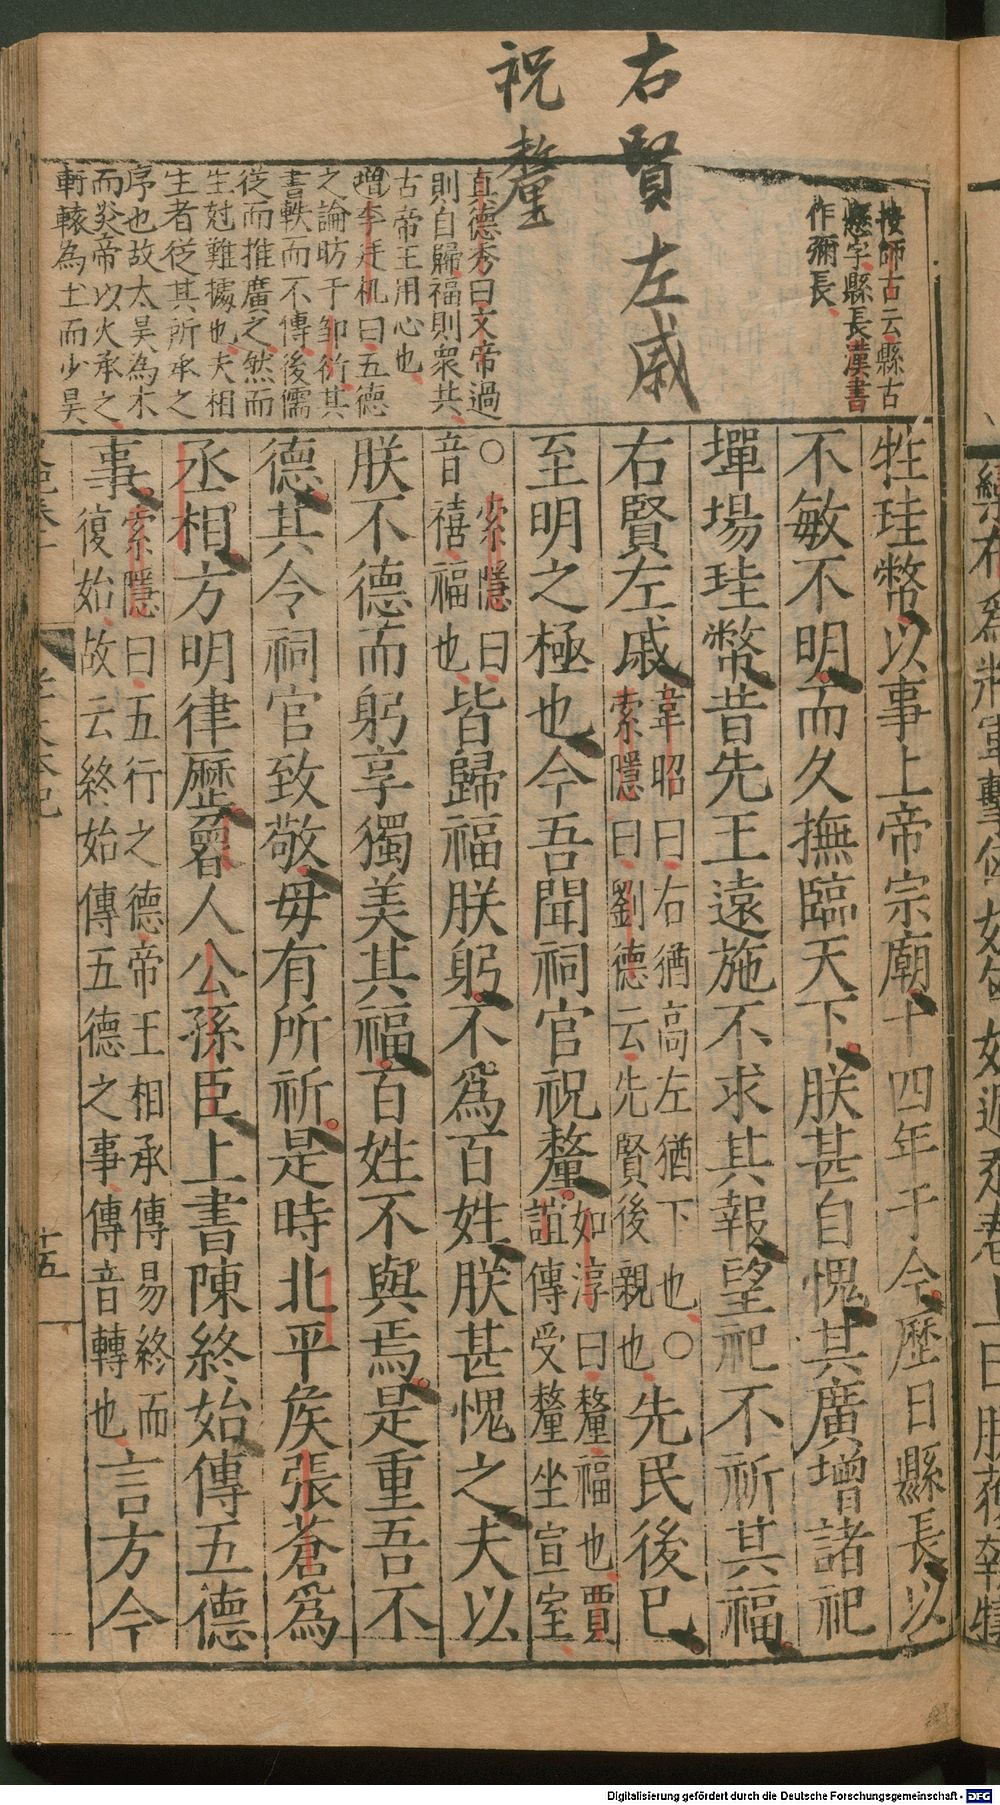 右賢左戚
祝釐
按師古云縣古
懸字縣長漢書
作彌長
真德秀曰文帝過
則自歸福則衆共
古帝王用心也
增李廷机曰五德
之論昉于鄒衍其
書軼而不傳後儒
從而推廣之然而
生尅難據也夫相
生者從其所承之
序也故太昊為木
而炎帝以火承之
軒轅為土而少昊
牲珪幣以事上帝宗廟十四年于今歷日縣長以
不敏不明而久撫臨天下朕甚自愧其廣增諸祀
墠場珪幣昔先王遠施不求其報望祀不祈其福
右賢左戚韋昭曰右猶高左猶下也○索隱曰劉德云先賢後親也先民後己
至明之極也今吾聞祠官祝釐如淳曰釐福也賈誼傳受釐坐宣室
○索隱曰音禧福也皆歸福朕躬不爲百姓朕甚愧之夫以
朕不德而躬享獨美其福百姓不與焉是重吾不
德其令祠官致敬毋有所祈是時北平矦張蒼爲
丞相方明律歷魯人公孫臣上書陳終始傳五德
事索隱曰五行之德帝王相承傳易終而復始故云終始傳五德之事傳音轉也言方今
十五
Digitalisierung gefördert durch die Deutsche Forschungsgemeinschaft - DFG